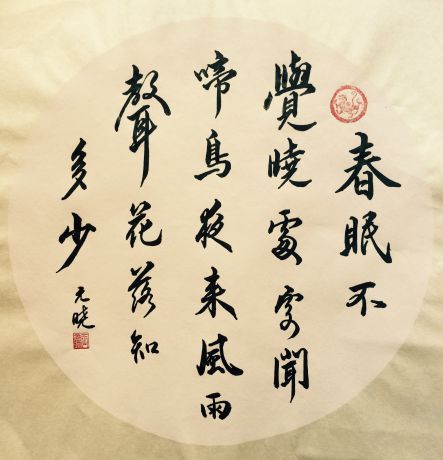 春眠不
覺曉處處聞
啼鳥夜来風雨
聲花落知
多少
元曉